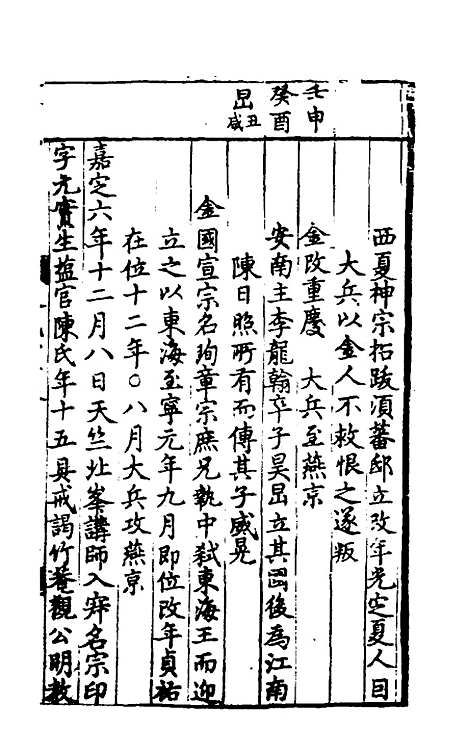 壬申
癸酉
昷丑咸
西夏神宗拓跋湏蕃邸立改年光定夏人目
大兵以金人不救恨之遂叛
金改重慶　大兵至燕京
安南主李龍翰卒子昊昷立其國後為江南
陳日照所有而傳其子威晃
金國宣宗名珣章宗庶兄執中弑東海王而迎
立之以東海至寧元年九月即位改年貞祐
在位十二年○八月大兵攻燕京
嘉定六年十二月八日天竺北峯講師入寂名宗印
字元實生蘊官陳氏年十五具戒謁竹菴觀公明教